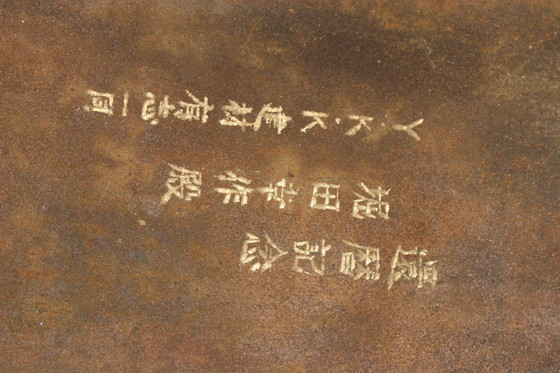 還暦記念
堀田幸作殿
Y.K.K建材有志一同